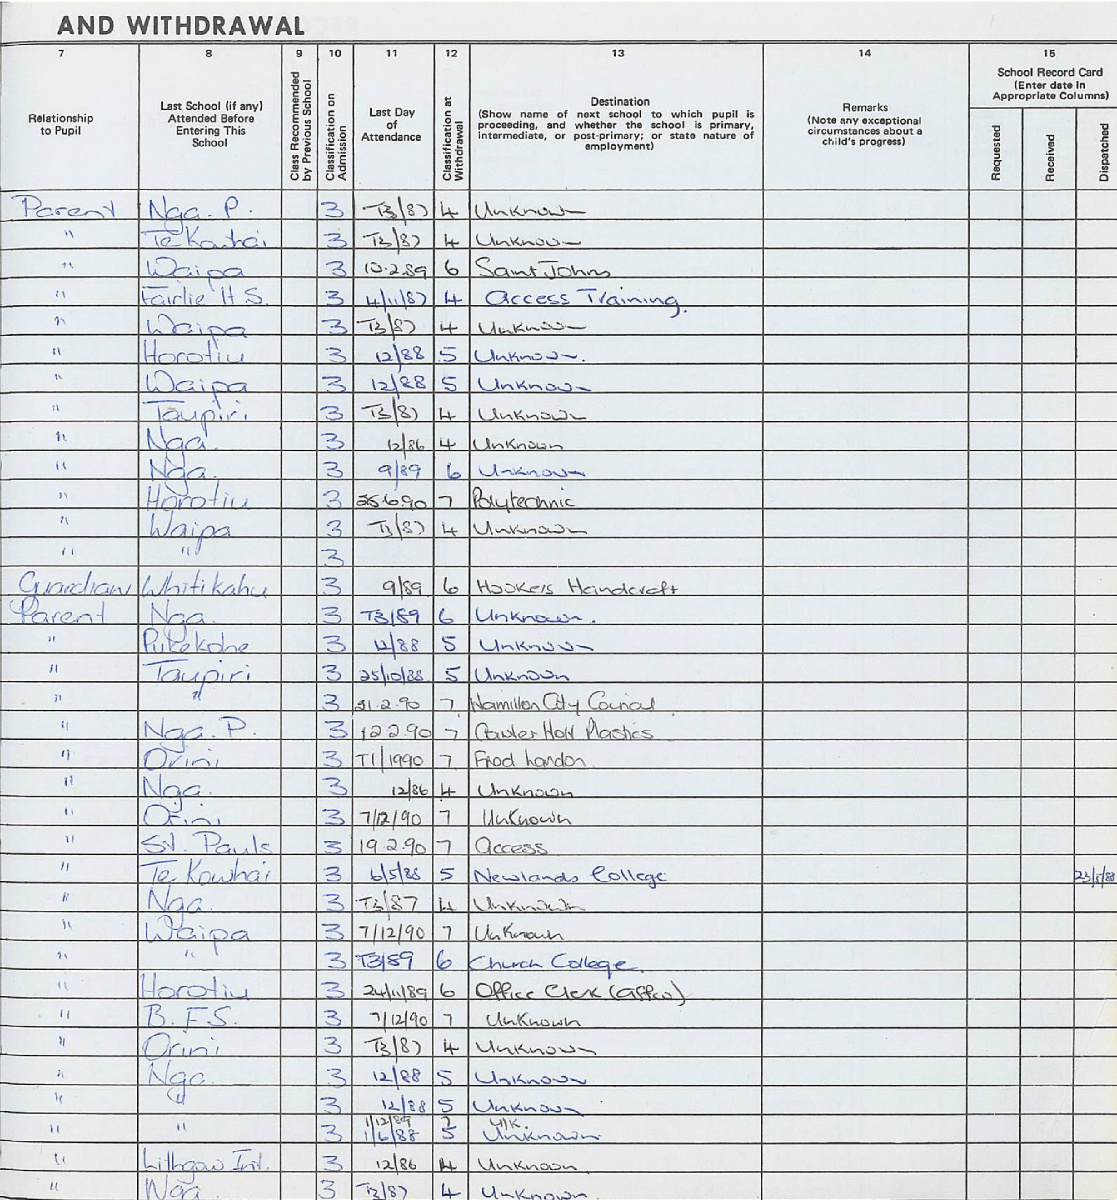 AND WITHDRAWAL
7 8 9 10 11 12 13 14 15
Relationship to Pupil
Last School (if any) Attended Before Entering This School
Class Recommended by Previous School
Classification on Admission
Last Day of Attendance
Classification at Withdrawal
Destination
(Show name of next school to which pupil is proceeding, and whether the school is primary, intermediate, or post-primary; or state nature of employment)
Remarks
(Note any exceptional circumstances about a child's progress)
School Record Card
(Enter date in Appropriate Columns)
Requested Received Dispatched
Parent Nga. P. 3 T3/87 4 Unknown
" Te Kowhai 3 T3/87 4 Unknown
" Waipa 3 10.2.89 6 Saint Johns
" Fairlie H S. 3 4/11/87 4 Access Training.
" Waipa 3 T3/87 4 Unknown
" Horotiu 3 12/88 5 Unknown.
" Waipa 3 12/88 5 Unknown
" Taupiri 3 T3/87 4 Unknown
" Nga. 3 12/86 4 Unknown
" Nga. 3 9/89 6 Unknown
" Horotiu 3 25.6.90 7 Polytechnic
" Waipa 3 T3/87 4 Unknown
" " 3
Guardian Whitikahu 3 9/89 6 Hookers Handcraft
Parent Nga. 3 T3/89 6 Unknown.
" Pukekohe 3 12/88 5 Unknown
" Taupiri 3 25/10/88 5 Unknown
" " 3 21.2.90 7 Hamilton City Council
" Nga. P. 3 12.2.90 7 Carter Holt Plastics
" Orini 3 T1/1990 7 Fred London
" Nga. 3 12/86 4 Unknown
" Orini 3 7/12/90 7 Unknown
" St. Pauls 3 19.2.90 7 Access
" Te Kowhai 3 6/5/88 5 Newlands College 23/5/88
" Nga. 3 T3/87 4 Unknown
" Waipa 3 7/12/90 7 Unknown
" " 3 T3/89 6 Church College.
" Horotiu 3 24/11/89 6 Office Clerk (Affco)
" B.F.S. 3 7/12/90 7 Unknown
" Orini 3 T3/87 4 Unknown
" Nga 3 12/88 5 Unknown
" " 3 12/88 5 Unknown
1/12/89 2 U/K.
" " 3 1/6/88 5 Unknown
" Lithgow Int. 3 12/86 4 Unknown
" Nga 3 T3/87 4 Unknown.